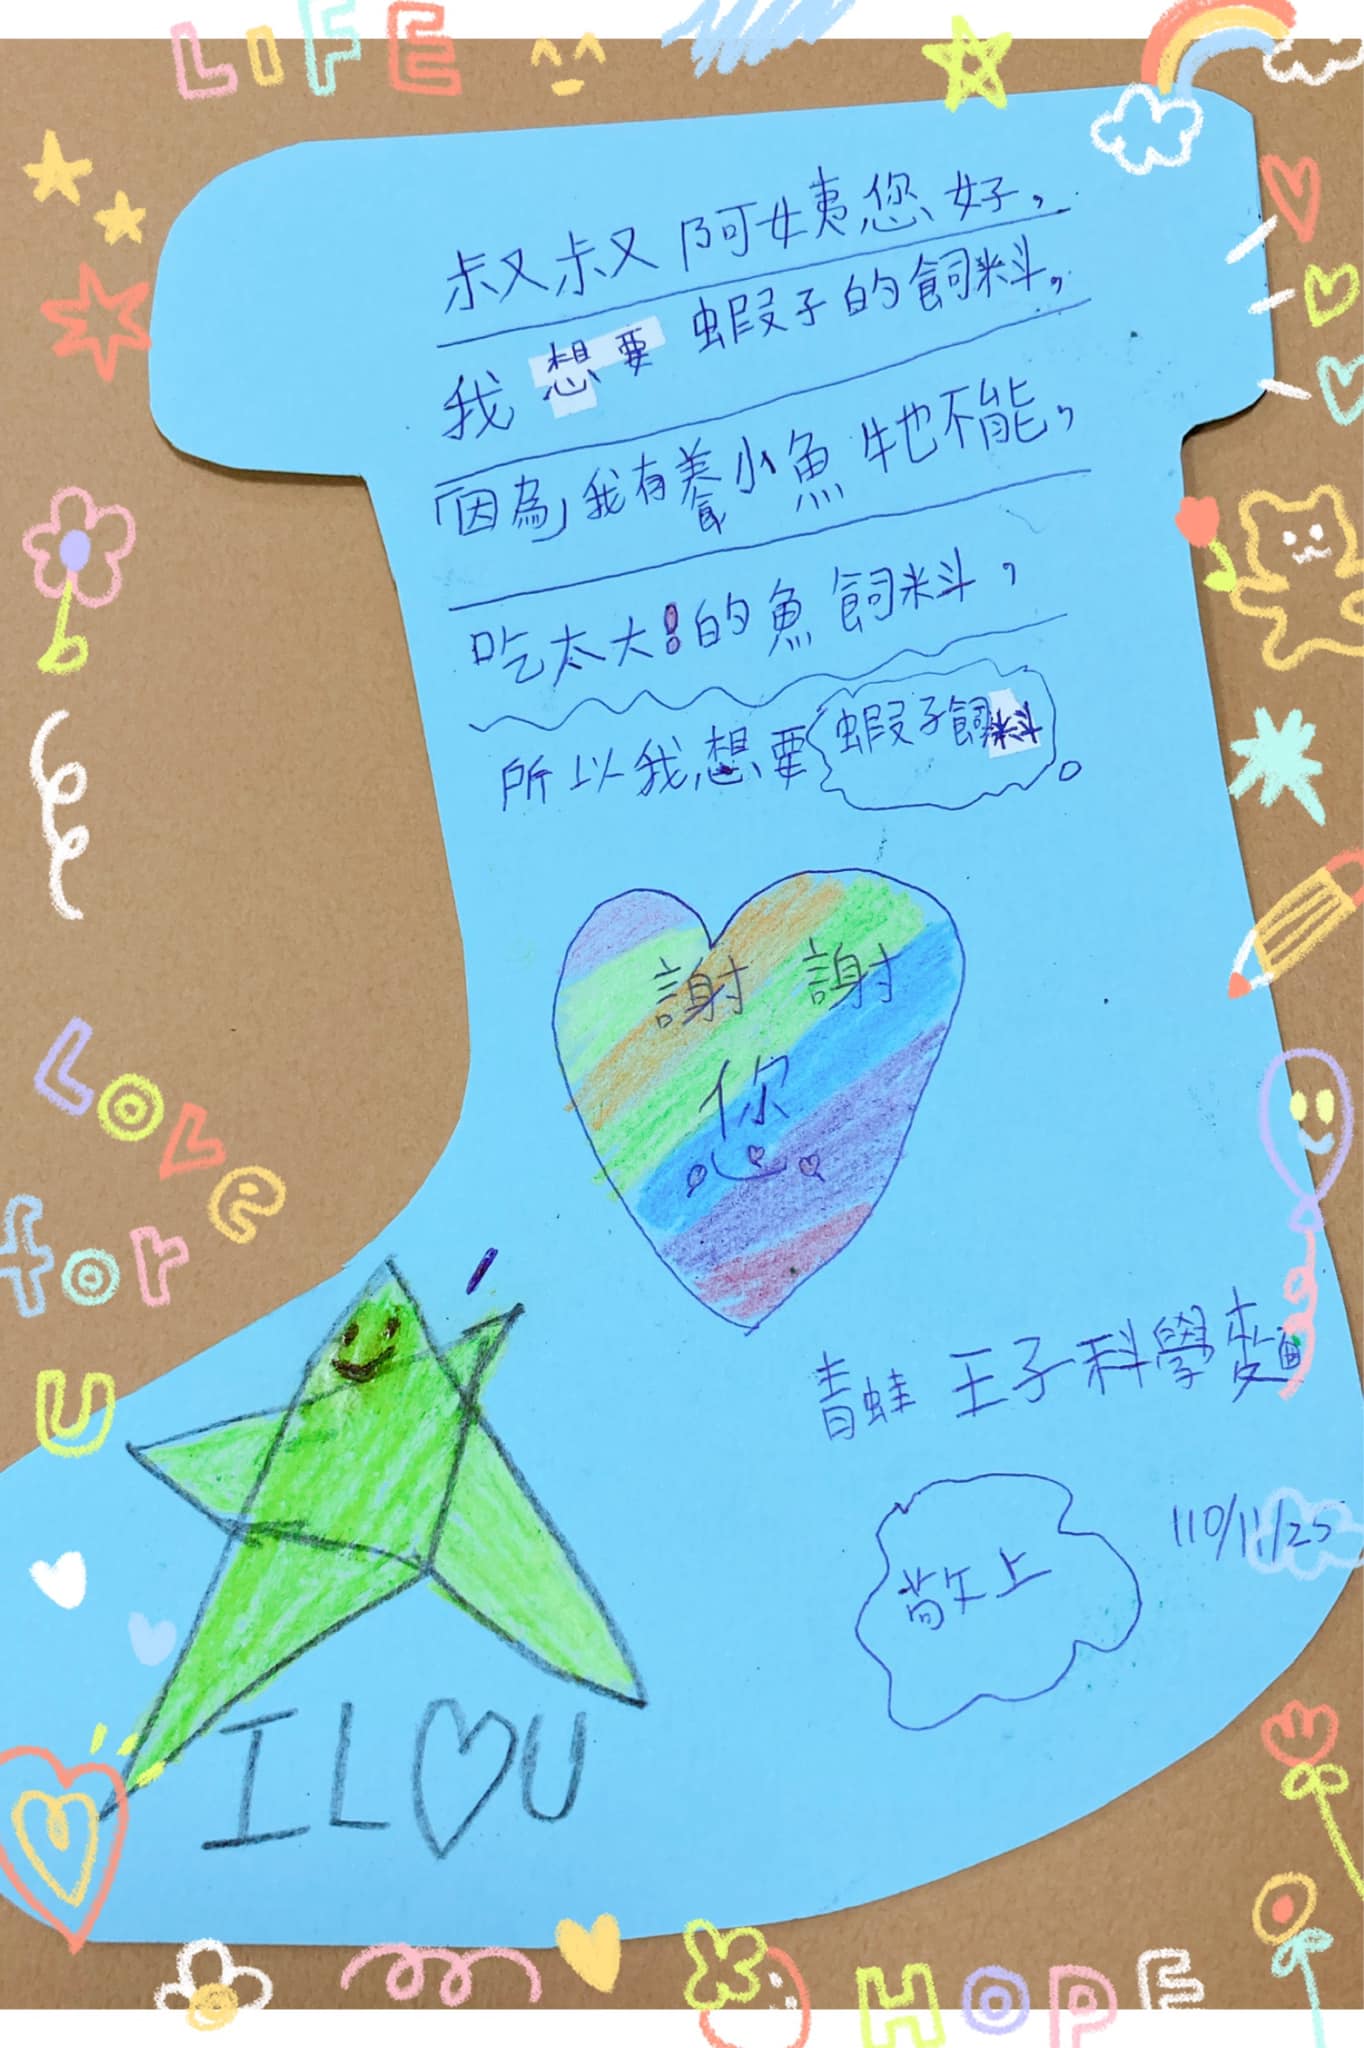 LIFE
叔叔阿姨您好，
我想要蝦子的飼料，
「因為」我有養小魚牠不能，
吃太大!的魚飼料，
所以我想要蝦子飼料。
謝謝
你
LOVE
for
U
青蛙王子科學麵
敬上
110/11/25
I L♡U
HOPE